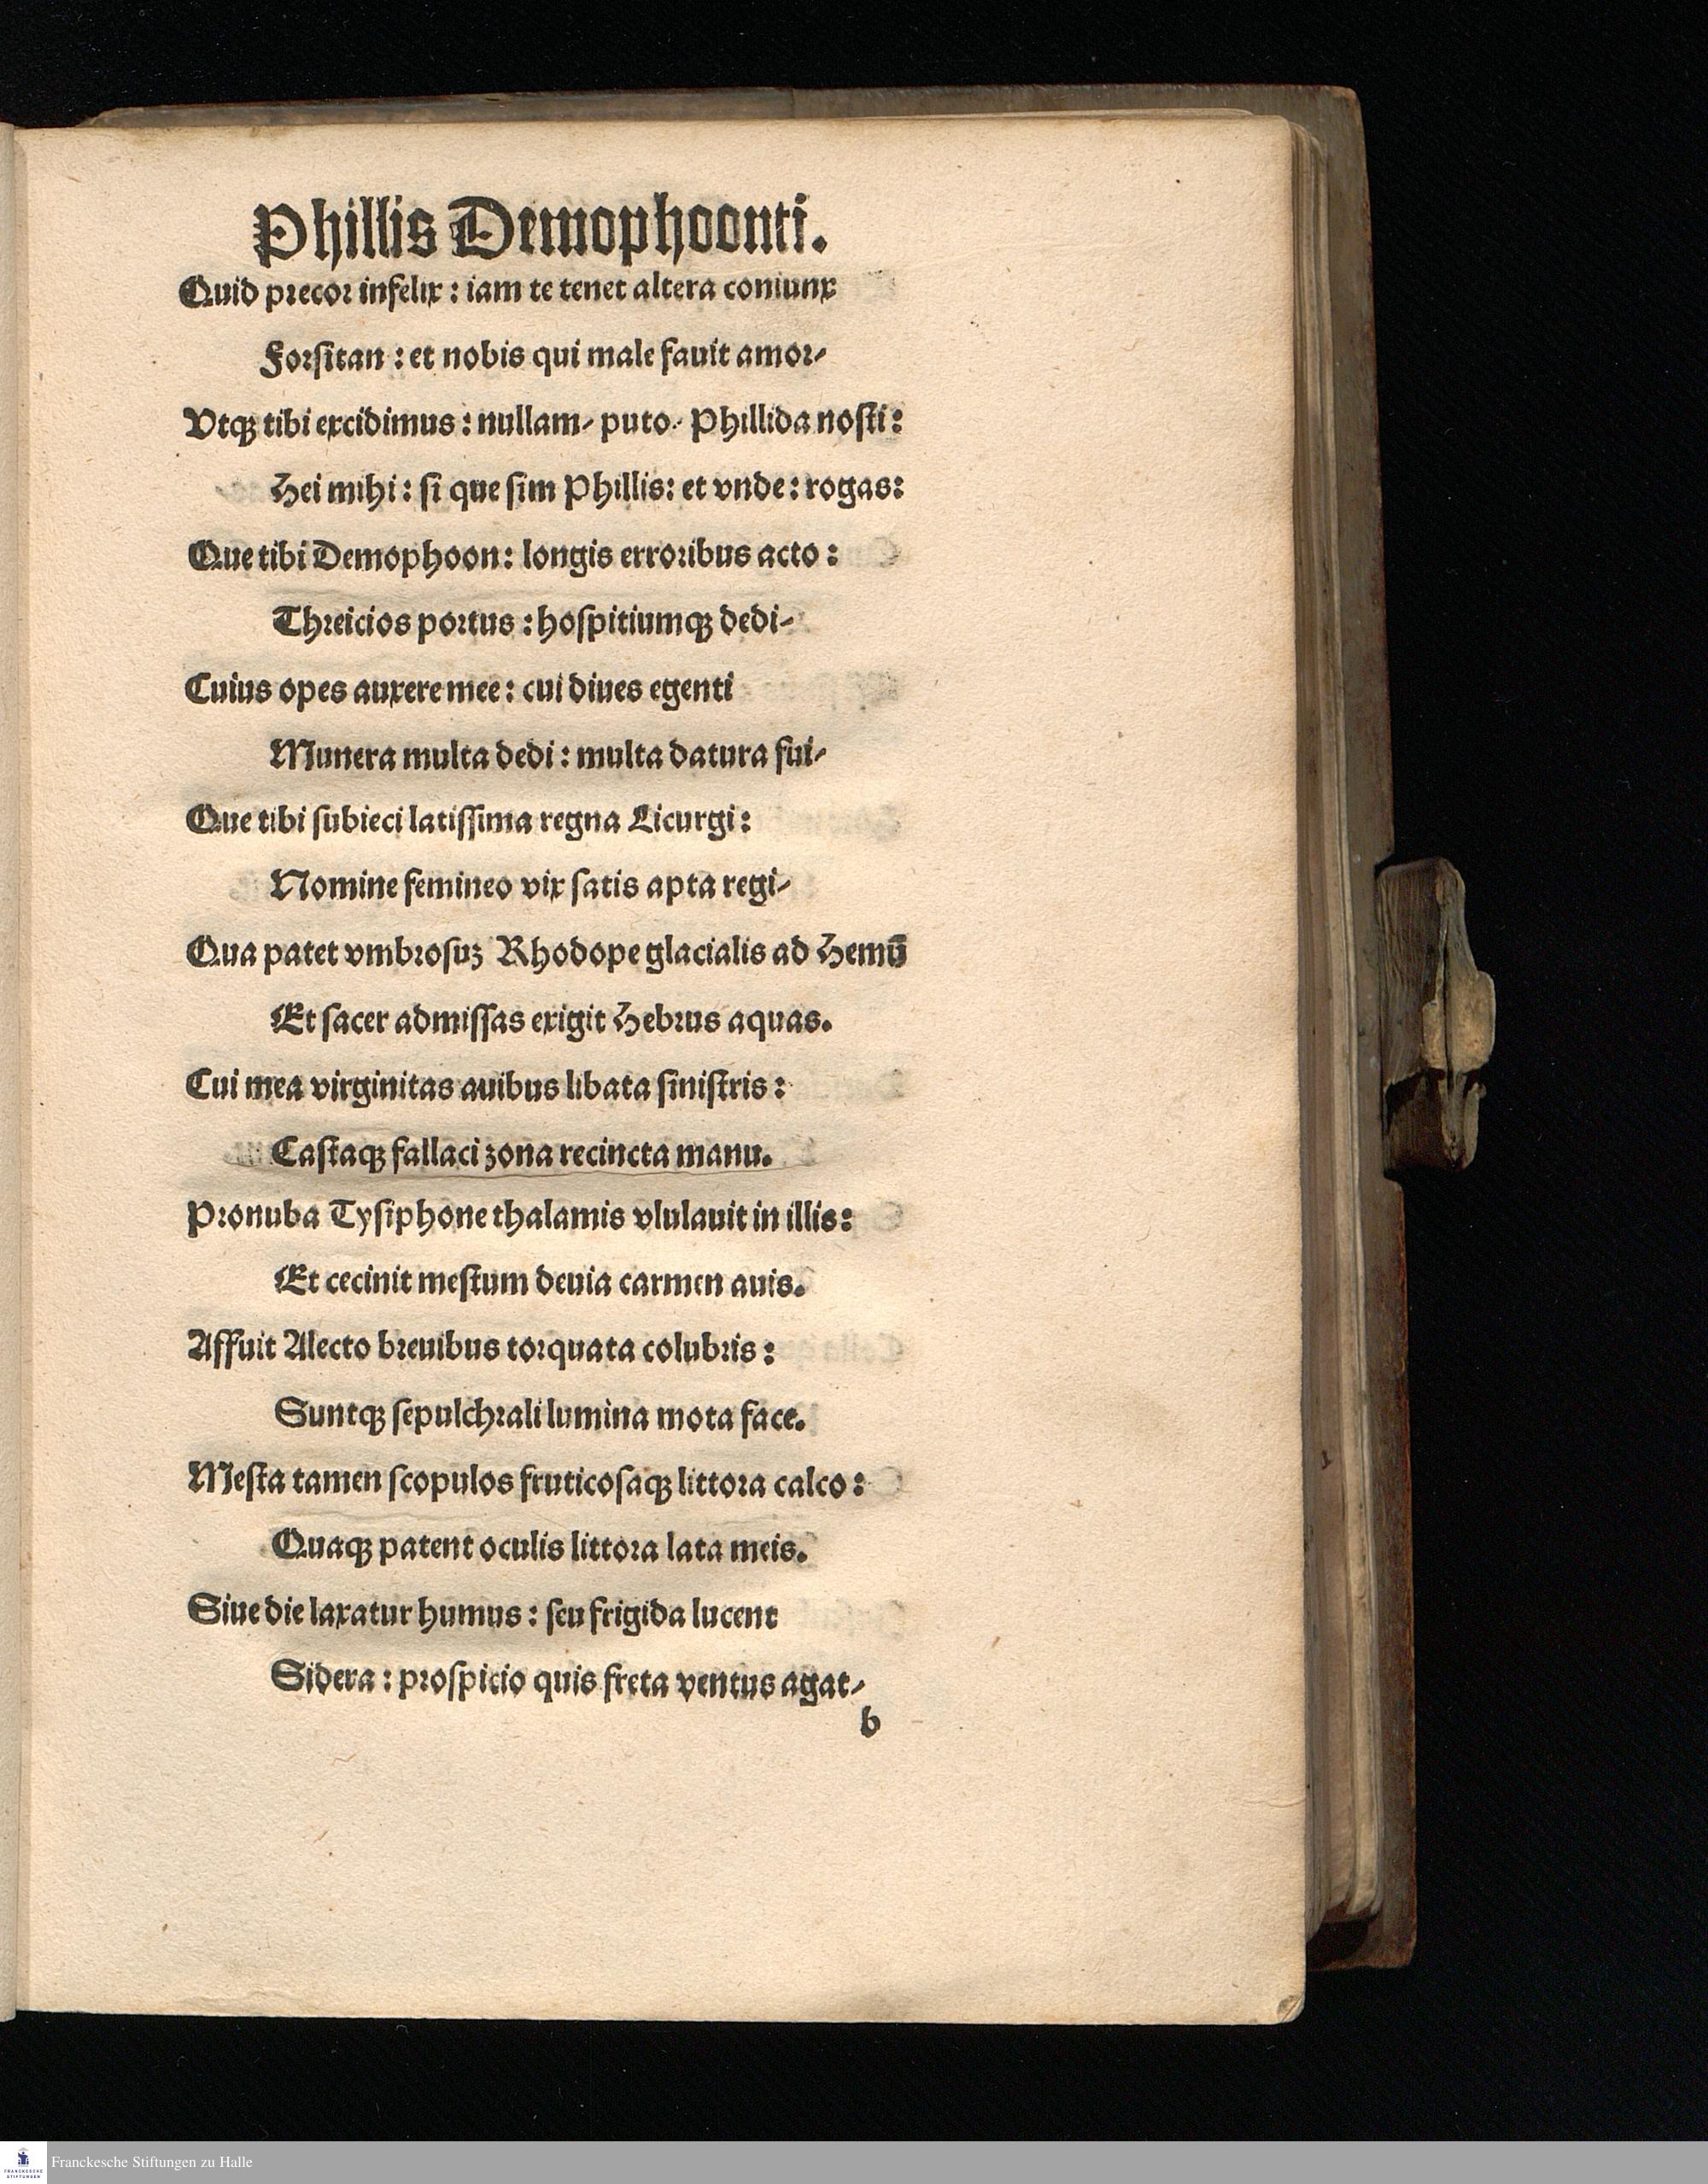 Phillis Demophoonti.
Quid precor infelix : iam te tenet altera coniunx
Forsitan : et nobis qui male fauit amor⸗
Vtqꝫ tibi excidimus : nullam⸗ puto⸗ Phillida nosti :
Hei mihi : si que sim Phillis : et vnde : rogas :
Que tibi Demophoon : longis erroribus acto :
Threicios portus : hospitiumqꝫ dedi⸗
Cuius opes auxere mee : cui diues egenti
Munera multa dedi : multa datura fui⸗
Que tibi subieci latissima regna Licurgi :
Nomine femineo vix satis apta regi⸗
Qua patet vmbrosuꝫ Rhodope glacialis ad Hemū
Et sacer admissas exigit Hebrus aquas.
Cui mea virginitas auibus libata sinistris :
Castaqꝫ fallaci zona recincta manu.
Pronuba Tysiphone thalamis vlulauit in illis :
Et cecinit mestum deuia carmen auis.
Affuit Alecto breuibus torquata colubris :
Suntqꝫ sepulchrali lumina mota face.
Mesta tamen scopulos fruticosaqꝫ littora calco :
Quaqꝫ patent oculis littora lata meis.
Siue die laxatur humus : seu frigida lucent
Sidera : prospicio quis freta ventus agat⸗
b
FRANCKESCHE STIFTUNGEN
Franckesche Stiftungen zu Halle